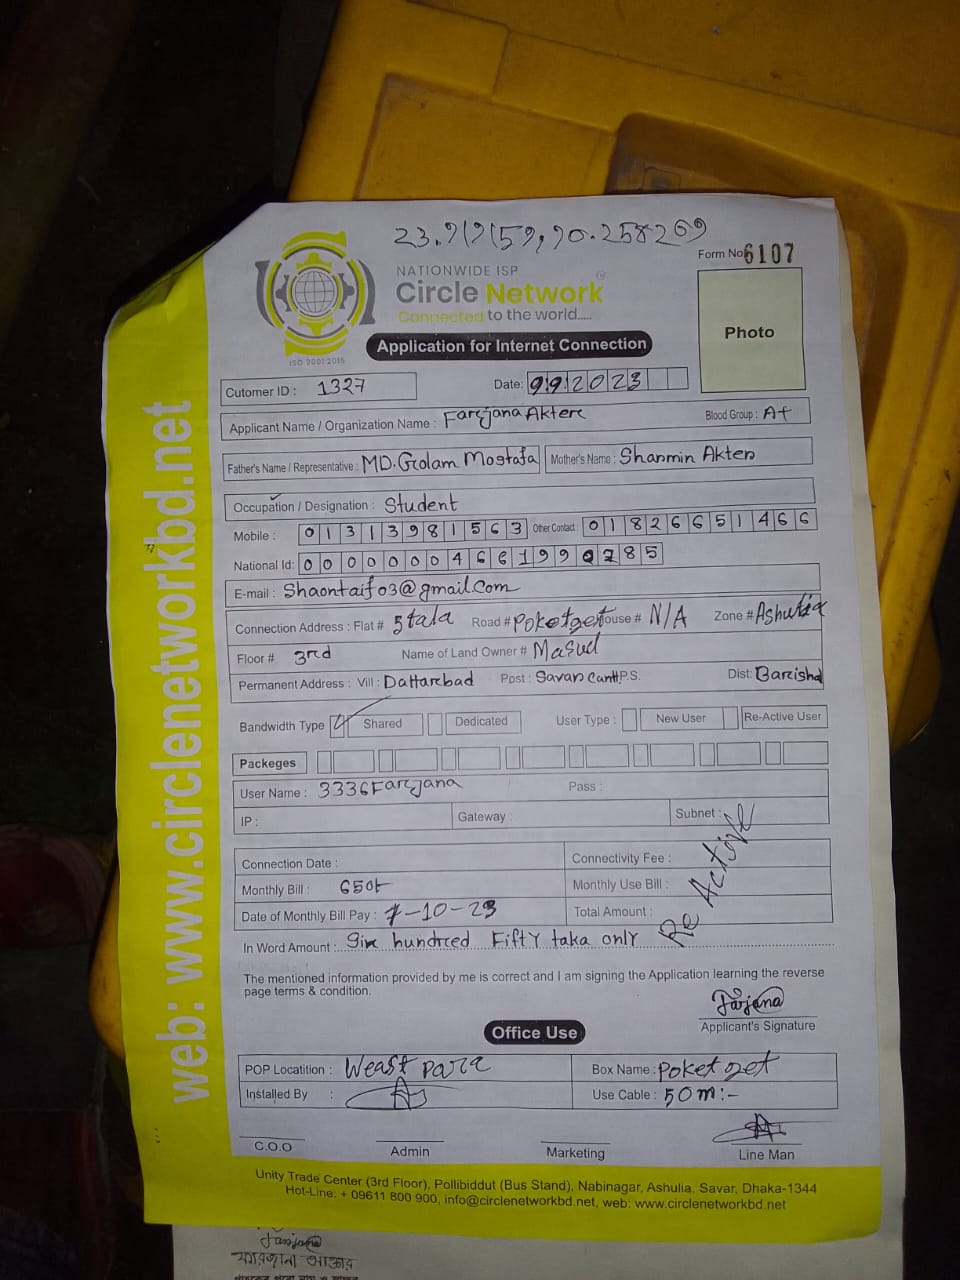 23.919159,90.258269
Form No 6107
NATIONWIDE ISP
Circle Network
Connected to the world.....
ISO 9001:2015
Photo
Application for Internet Connection
Cutomer ID : 1327 Date: 992023
Applicant Name / Organization Name : Farjana Akter Blood Group : A+
Father's Name / Representative : MD. Golam Mostafa Mother's Name : Sharmin Akter
Occupation / Designation : Student
Mobile : 01313981563 Other Contact : 01826651466
National Id: 0000000466199
E-mail : Shaontaif03@gmail.com
Connection Address : Flat # 5tala Road # Poketget House # N/A Zone # Ashulia
Floor # 3rd Name of Land Owner # Masud
Permanent Address : Vill : Dattarabad Post : Savar Cantt P.S. Dist: Barishal
Bandwidth Type Shared Dedicated User Type : New User Re-Active User
Packeges
User Name : 3336Farjana Pass :
IP : Gateway : Subnet :
Connection Date : Connectivity Fee :
Monthly Bill : 650t Monthly Use Bill :
Date of Monthly Bill Pay : 7-10-23 Total Amount :
Re Active
In Word Amount : Six hundred Fifty taka only
The mentioned information provided by me is correct and I am signing the Application learning the reverse
page terms & condition.
Farjana
Applicant's Signature
Office Use
POP Locatition : Weast para Box Name : Poket get
Installed By : Use Cable : 50m:-
C.O.O Admin Marketing Line Man
Unity Trade Center (3rd Floor), Pollibiddut (Bus Stand), Nabinagar, Ashulia, Savar, Dhaka-1344
Hot-Line: + 09611 800 900, info@circlenetworkbd.net, web: www.circlenetworkbd.net
web: www.circlenetworkbd.net
Farjana
ফারজানা আক্তার